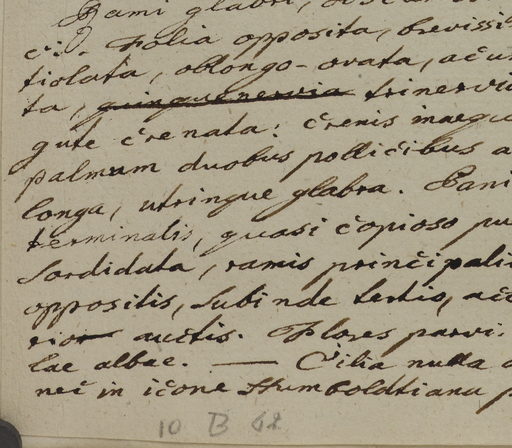 Rami glabri,
ci. Folia opposita, brevissi
tiolata, oblongo-ovata, acu
ta, quinquenervia trinervi
gute crenata: crenis inaequ
palmam duobus pollicibus a
longa, utringue glabra. Pani
terminalis, quasi copioso pu
sordidata, ramis principali
oppositis, subinde tertio, acc
rior auctis. Flores parvi.
lae albae. — Cilia nulla
nec in icone Humboldtiana p
10 B 62